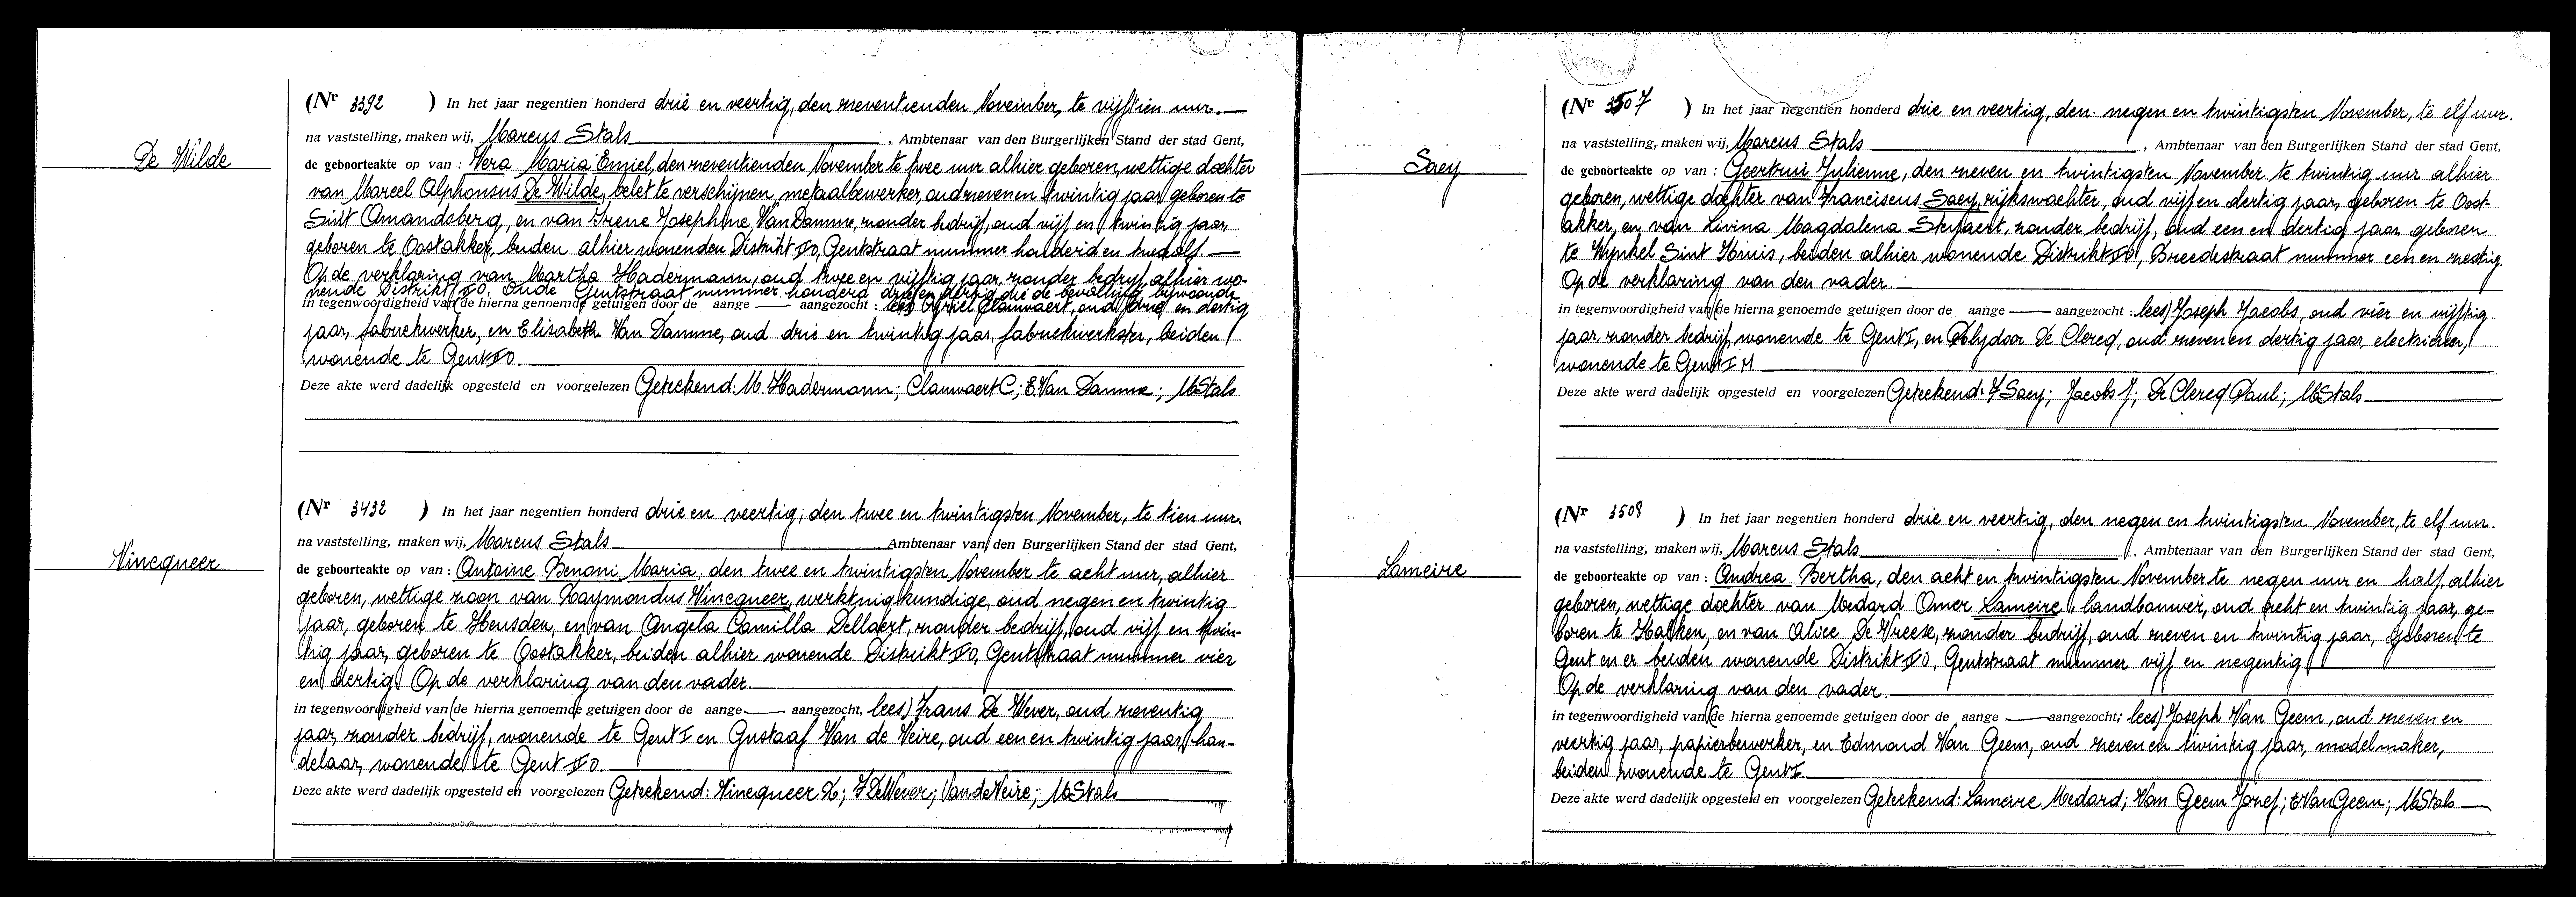 De Wilde
(Nr 3392 ) In het jaar negentien honderd drie en veertig, den zeventienden November, te vijftien uur.
na vaststelling, maken wij, Marcus Stals , Ambtenaar van den Burgerlijken Stand der stad Gent,
de geboorteakte op van : Vera Maria Emiel, den zeventienden November te twee uur alhier geboren, wettige dochter
van Marcel Alphonsus De Wilde, belet te verschijnen, metaalbewerker, oud zeven en twintig jaar, geboren te
Sint Amandsberg, en van Irene Josephine Van Damme, zonder bedrijf, oud vijf en twintig jaar,
geboren te Oostakker, beiden alhier wonenden Distrikt Gentstraat nummer honderd en twaalf
Op de verklaring van Martha Hadermann, oud twee en vijftig jaar, zonder bedrijf, alhier wo-
nende Distrikt Oude Gentstraat nummer honderd drie en dertig die de bevalling bijwoonde
in tegenwoordigheid van de hierna genoemde getuigen door de aange — aangezocht : lees) Cyriel Clauwaert, oud drie en dertig
jaar, fabriekwerker, en Elisabeth Van Damme, oud drie en twintig jaar, fabriekwerkster, beiden
wonende te Gent
Deze akte werd dadelijk opgesteld en voorgelezen Geteekend: M. Hadermann; Clauwaert C; E. Van Damme; M Stals
Vincqueer
(Nr 3432 ) In het jaar negentien honderd drie en veertig, den twee en twintigsten November, te tien uur.
na vaststelling, maken wij, Marcus Stals , Ambtenaar van den Burgerlijken Stand der stad Gent,
de geboorteakte op van : Antoine Benoni Maria, den twee en twintigsten November te acht uur, alhier
geboren, wettige zoon van Raymondus Vincqueer, werktuigkundige, oud negen en twintig
jaar, geboren te Heusden, en van Angela Camilla Dellaert, zonder bedrijf, oud vijf en twin-
tig jaar, geboren te Oostakker, beiden alhier wonende Distrikt Gentstraat nummer vier
en dertig Op de verklaring van den vader.
in tegenwoordigheid van de hierna genoemde getuigen door de aange — aangezocht, lees) Frans De Wever, oud zeventig
jaar, zonder bedrijf, wonende te Gent I en Gustaaf Van de Veire, oud een en twintig jaar, han-
delaar, wonende te Gent
Deze akte werd dadelijk opgesteld en voorgelezen Geteekend: Vincqueer R; F De Wever; Van de Veire; M Stals
Saey
(Nr 3507 ) In het jaar negentien honderd drie en veertig, den negen en twintigsten November, te elf uur.
na vaststelling, maken wij, Marcus Stals , Ambtenaar van den Burgerlijken Stand der stad Gent,
de geboorteakte op van : Geertrui Julienne, den zeven en twintigsten November te twintig uur alhier
geboren, wettige dochter van Franciscus Saey, rijkswachter, oud vijf en dertig jaar, geboren te Oost-
akker, en van Livina Magdalena zonder bedrijf, oud een en dertig jaar geboren
te Wynkel Sint Kruis, beiden alhier wonende Distrikt Breedestraat nummer een en zestig.
Op de verklaring van den vader.
in tegenwoordigheid van de hierna genoemde getuigen door de aange — aangezocht : lees) Joseph Jacobs, oud vier en vijftig
jaar, zonder bedrijf, wonende te Gent I, en De Clercq, oud zeven en dertig jaar, electrieker,
wonende te Gent
Deze akte werd dadelijk opgesteld en voorgelezen Geteekend: F Saey; Jacobs J; De Clercq Paul; M Stals
Lameire
(Nr 3508 ) In het jaar negentien honderd drie en veertig, den negen en twintigsten November, te elf uur.
na vaststelling, maken wij, Marcus Stals , Ambtenaar van den Burgerlijken Stand der stad Gent,
de geboorteakte op van : Andrea Bertha, den acht en twintigsten November te negen uur en half, alhier
geboren, wettige dochter van Medard Omer Lameire, landbouwer, oud acht en twintig jaar, ge-
boren te Kalken, en van Alice De Vreese, zonder bedrijf, oud zeven en twintig jaar, geboren te
Gent en er beiden wonende Distrikt Gentstraat nummer vijf en negentig
Op de verklaring van den vader.
in tegenwoordigheid van de hierna genoemde getuigen door de aange — aangezocht; lees) Joseph Van Geem, oud zeven en
veertig jaar, papierbewerker, en Edmond Van Geem, oud zeven en twintig jaar, modelmaker,
beiden wonende te Gent I.
Deze akte werd dadelijk opgesteld en voorgelezen Geteekend: Lameire Medard; Van Geem Jozef; E Van Geem; M Stals